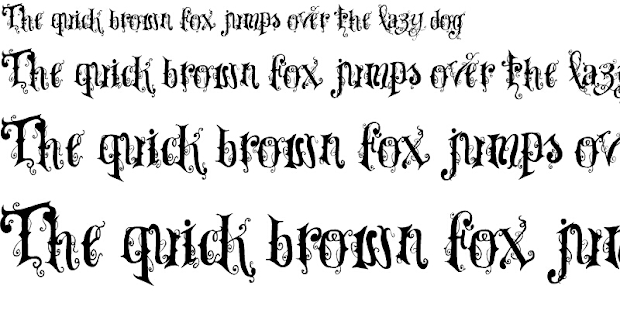 The quick brown fox jumps over the lazy dog
The quick brown fox jumps over the lazy
The quick brown fox jumps ov
The quick brown fox jum